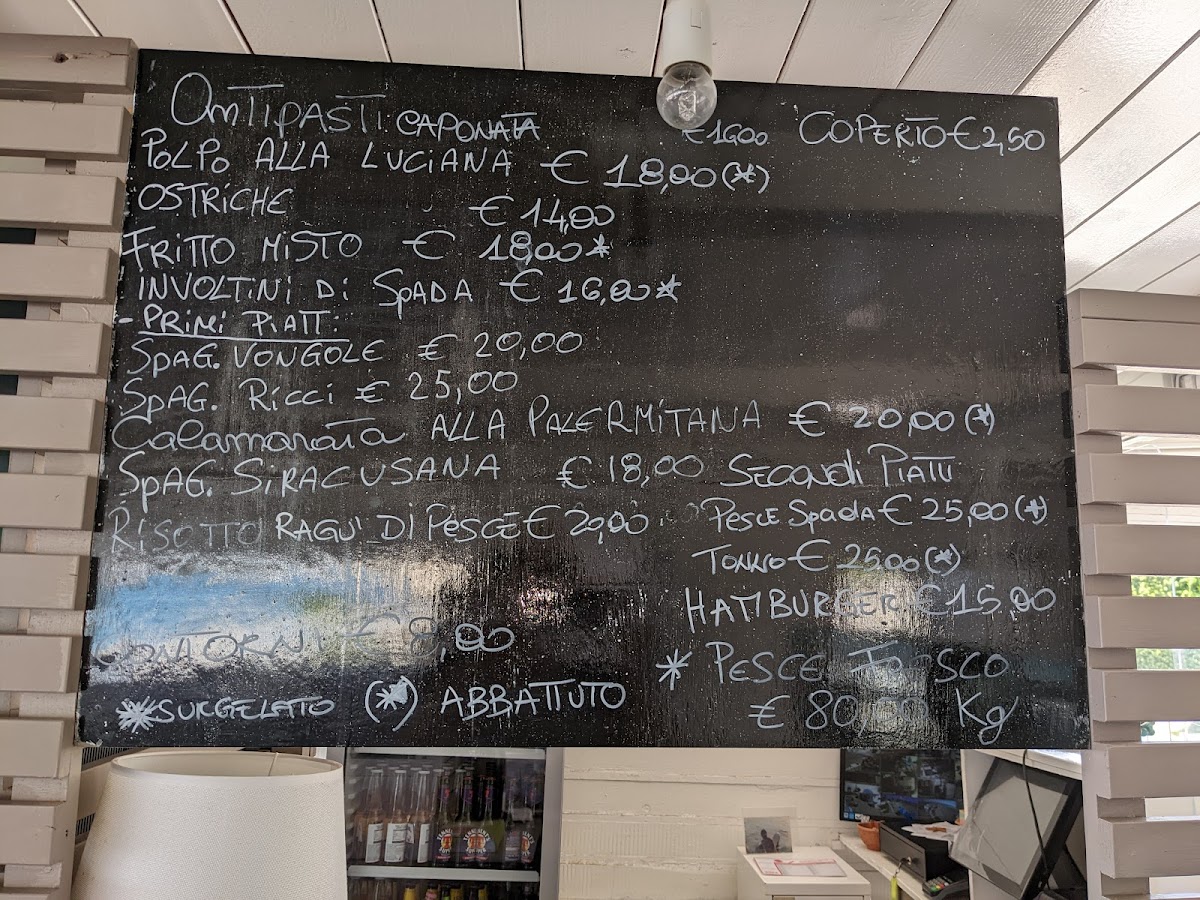 AnTIPASTI CAPONATA € 16,00 COPERTO € 2,50
POLPO ALLA LUCIANA € 18,00 (*)
OSTRICHE € 14,00
FRITTO MISTO € 18,00 *
INVOLTINI DI SPADA € 16,00 *
- PRIMI PIATTI:
SPAG. VONGOLE € 20,00
SPAG. RICCI € 25,00
Calamarata ALLA PALERMITANA € 20,00 (*)
SPAG. SIRACUSANA € 18,00
RISOTTO RAGU' DI PESCE € 20,00
CONTORNI € 8,00
*SURGELATO (*) ABBATTUTO
SECONDI PIATTI
PESCE SPADA € 25,00 (*)
TONNO € 25,00 (*)
HAMBURGER € 15,00
* PESCE FRESCO
€ 80,00 Kg